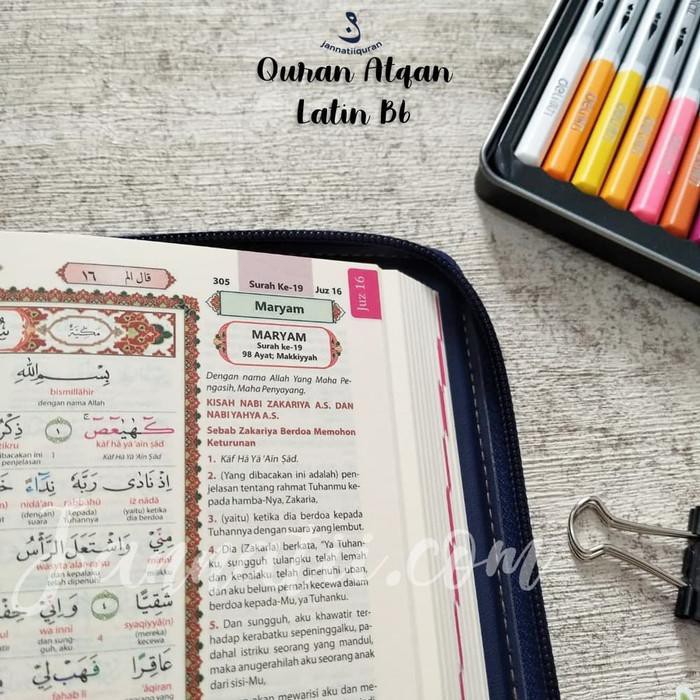 jannatiiquran
Quran Atqan
Latin B6
قال الم ١٦
305 Surah Ke-19 Juz 16
Juz 16
Maryam
MARYAM
Surah ke-19
98 Ayat; Makkiyyah
Dengan nama Allah Yang Maha Pe-
ngasih, Maha Penyayang.
KISAH NABI ZAKARIYA A.S. DAN
NABI YAHYA A.S.
Sebab Zakariya Berdoa Memohon
Keturunan
1. Kāf Hā Yā 'Ain Ṣād.
2. (Yang dibacakan ini adalah) pen-
jelasan tentang rahmat Tuhanmu ke-
pada hamba-Nya, Zakaria,
3. (yaitu) ketika dia berdoa kepada
Tuhannya dengan suara yang lembut.
4. Dia (Zakaria) berkata, "Ya Tuhan-
ku, sungguh tulangku telah lemah
dan kepalaku telah dipenuhi uban,
dan aku belum pernah kecewa dalam
berdoa kepada-Mu, ya Tuhanku.
5. Dan sungguh, aku khawatir ter-
hadap kerabatku sepeninggalku, pa-
dahal istriku seorang yang mandul,
maka anugerahilah aku seorang anak
dari sisi-Mu,
akan mewarisi aku dan me-
مكية
بِسْمِ اللّٰهِ
bismillāhir
dengan nama Allah
كۤهٰيٰعۤصۤ ۚ ١
kāf hā yā 'ain ṣād
Kāf Hā Yā 'Ain Ṣād
اِذْ نَادٰى رَبَّهٗ نِدَاۤءً
iż nādā rabbahū nidā'an
(yaitu) ketika dia berdoa (kepada) Tuhannya (dengan) suara
مِنِّيْ وَاشْتَعَلَ الرَّأْسُ
wasyta'alar-ra'su
dan kepalaku telah dipenuhi
شَقِيًّا ٤ وَاِنِّيْ
syaqiyyā(n) 4 wa innī
(mereka) kecewa dan sungguh, aku
عَاقِرًا فَهَبْ لِيْ
'āqiran fahab lī